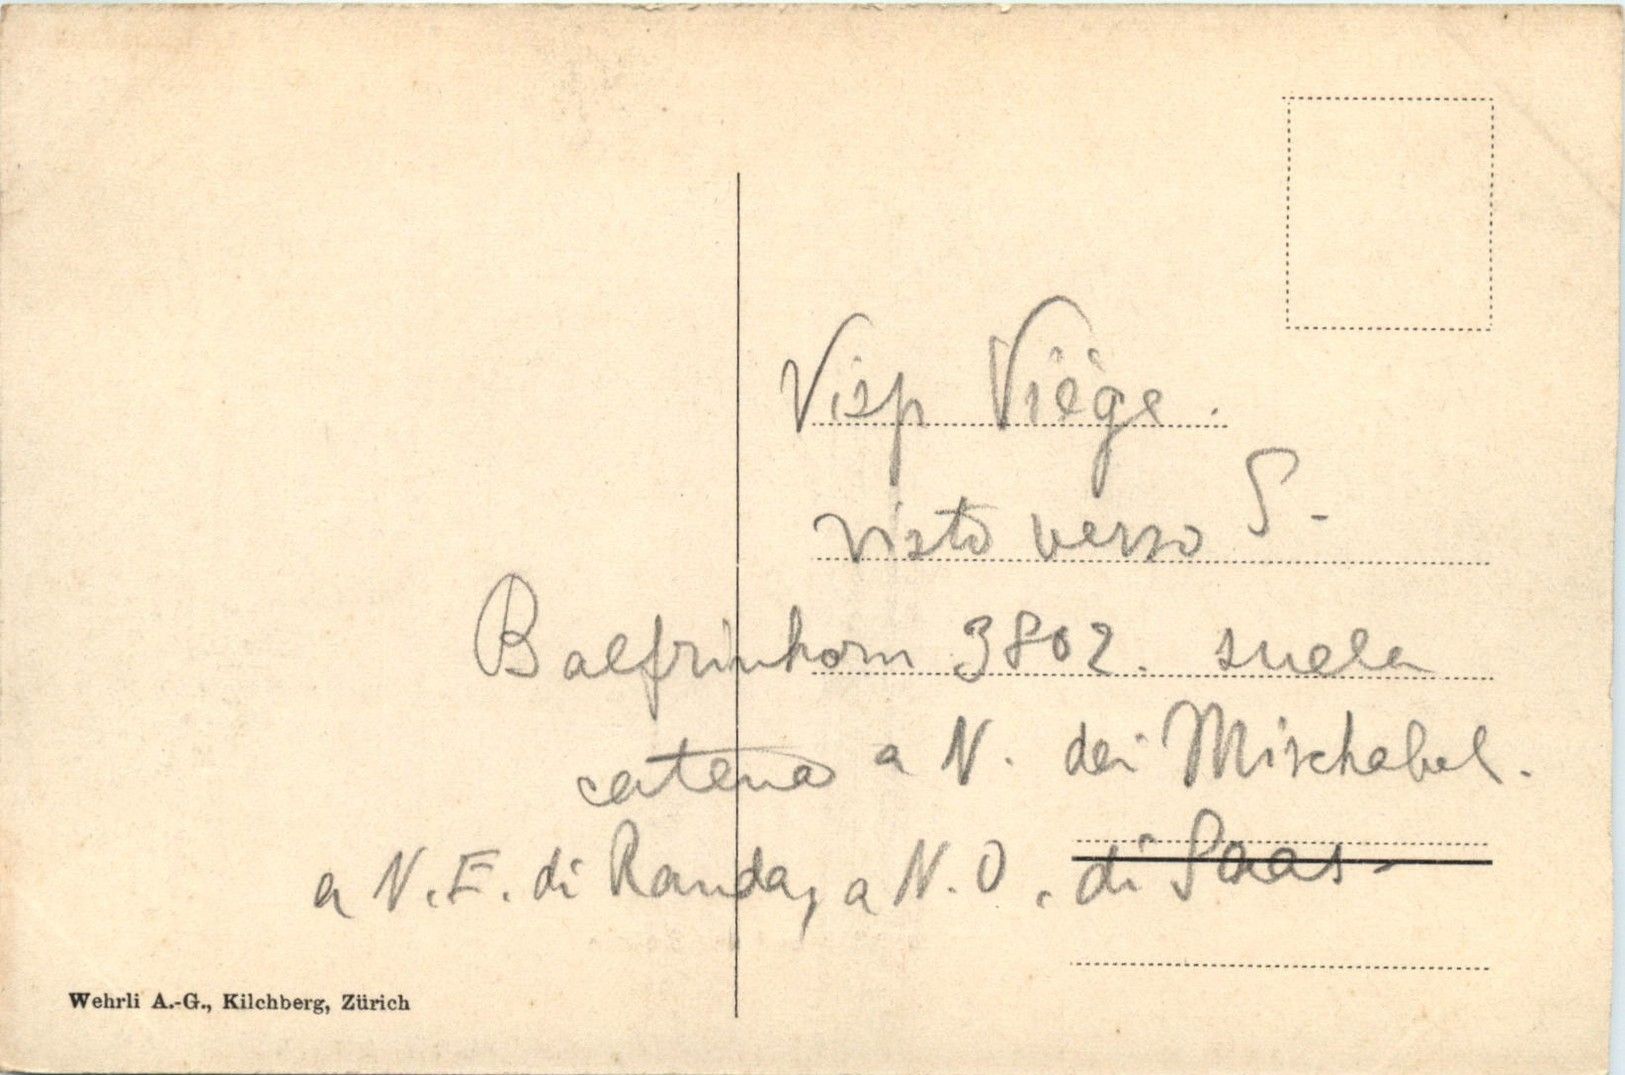 Visp Viège.
visto verso S.
Balfrinhorn 3802. suela
catena a N. dei Mischabel.
a N.E. di Randa, a N.O. di Saas
Wehrli A.-G., Kilchberg, Zürich